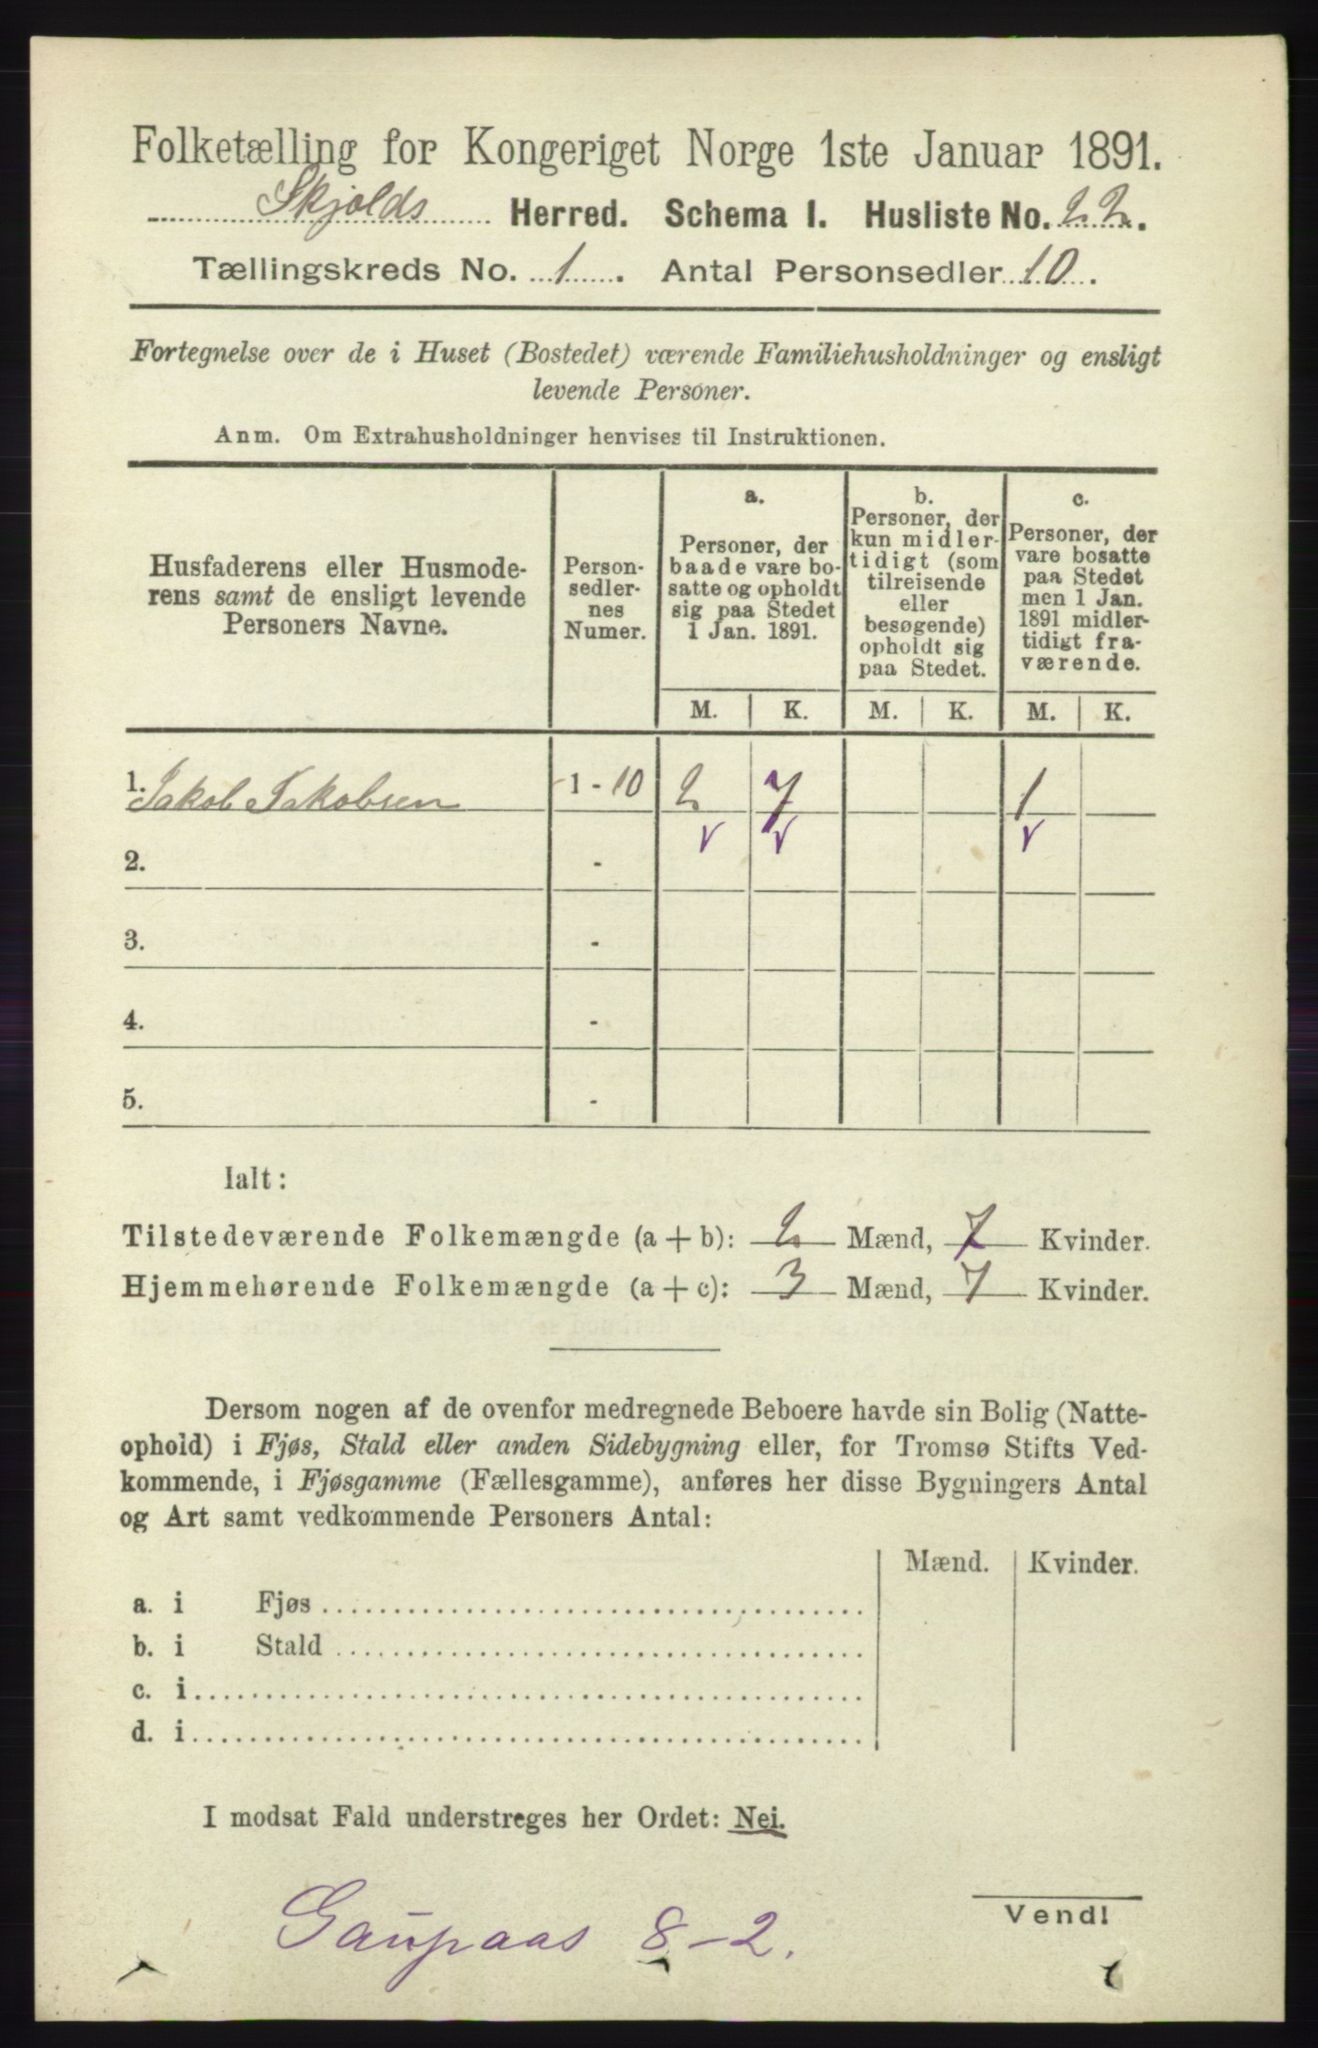 Folketælling for Kongeriget Norge 1ste Januar 1891.
Skjolds Herred. Schema I. Husliste No. 22.
Tællingskreds No. 1. Antal Personsedler 10.
Fortegnelse over de i Huset (Bostedet) værende Familiehusholdninger og ensligt
levende Personer.
Anm. Om Extrahusholdninger henvises til Instruktionen.
Husfaderens eller Husmode-
rens samt de ensligt levende
Personers Navne.
Person-
sedler-
nes
Numer.
a.
Personer, der
baade vare bo-
satte og opholdt
sig paa Stedet
1 Jan. 1891.
b.
Personer, der
kun midler-
tidigt (som
tilreisende
eller
besøgende)
opholdt sig
paa Stedet.
c.
Personer, der
vare bosatte
paa Stedet
men 1 Jan.
1891 midler-
tidigt fra-
værende.
M. K. M. K. M. K.
1. Jakob Jakobsen 1 - 10 2 7 1
v v v
2. -
3. -
4. -
5. -
Ialt:
Tilstedeværende Folkemængde (a + b): 2 Mænd, 7 Kvinder.
Hjemmehørende Folkemængde (a + c): 3 Mænd, 7 Kvinder.
Dersom nogen af de ovenfor medregnede Beboere havde sin Bolig (Natte-
ophold) i Fjøs, Stald eller anden Sidebygning eller, for Tromsø Stifts Ved-
kommende, i Fjøsgamme (Fællesgamme), anføres her disse Bygningers Antal
og Art samt vedkommende Personers Antal:
Mænd. Kvinder.
a. i Fjøs
b. i Stald
c. i
d. i
I modsat Fald understreges her Ordet: Nei.
Vend!
Gaupaas 8-2.